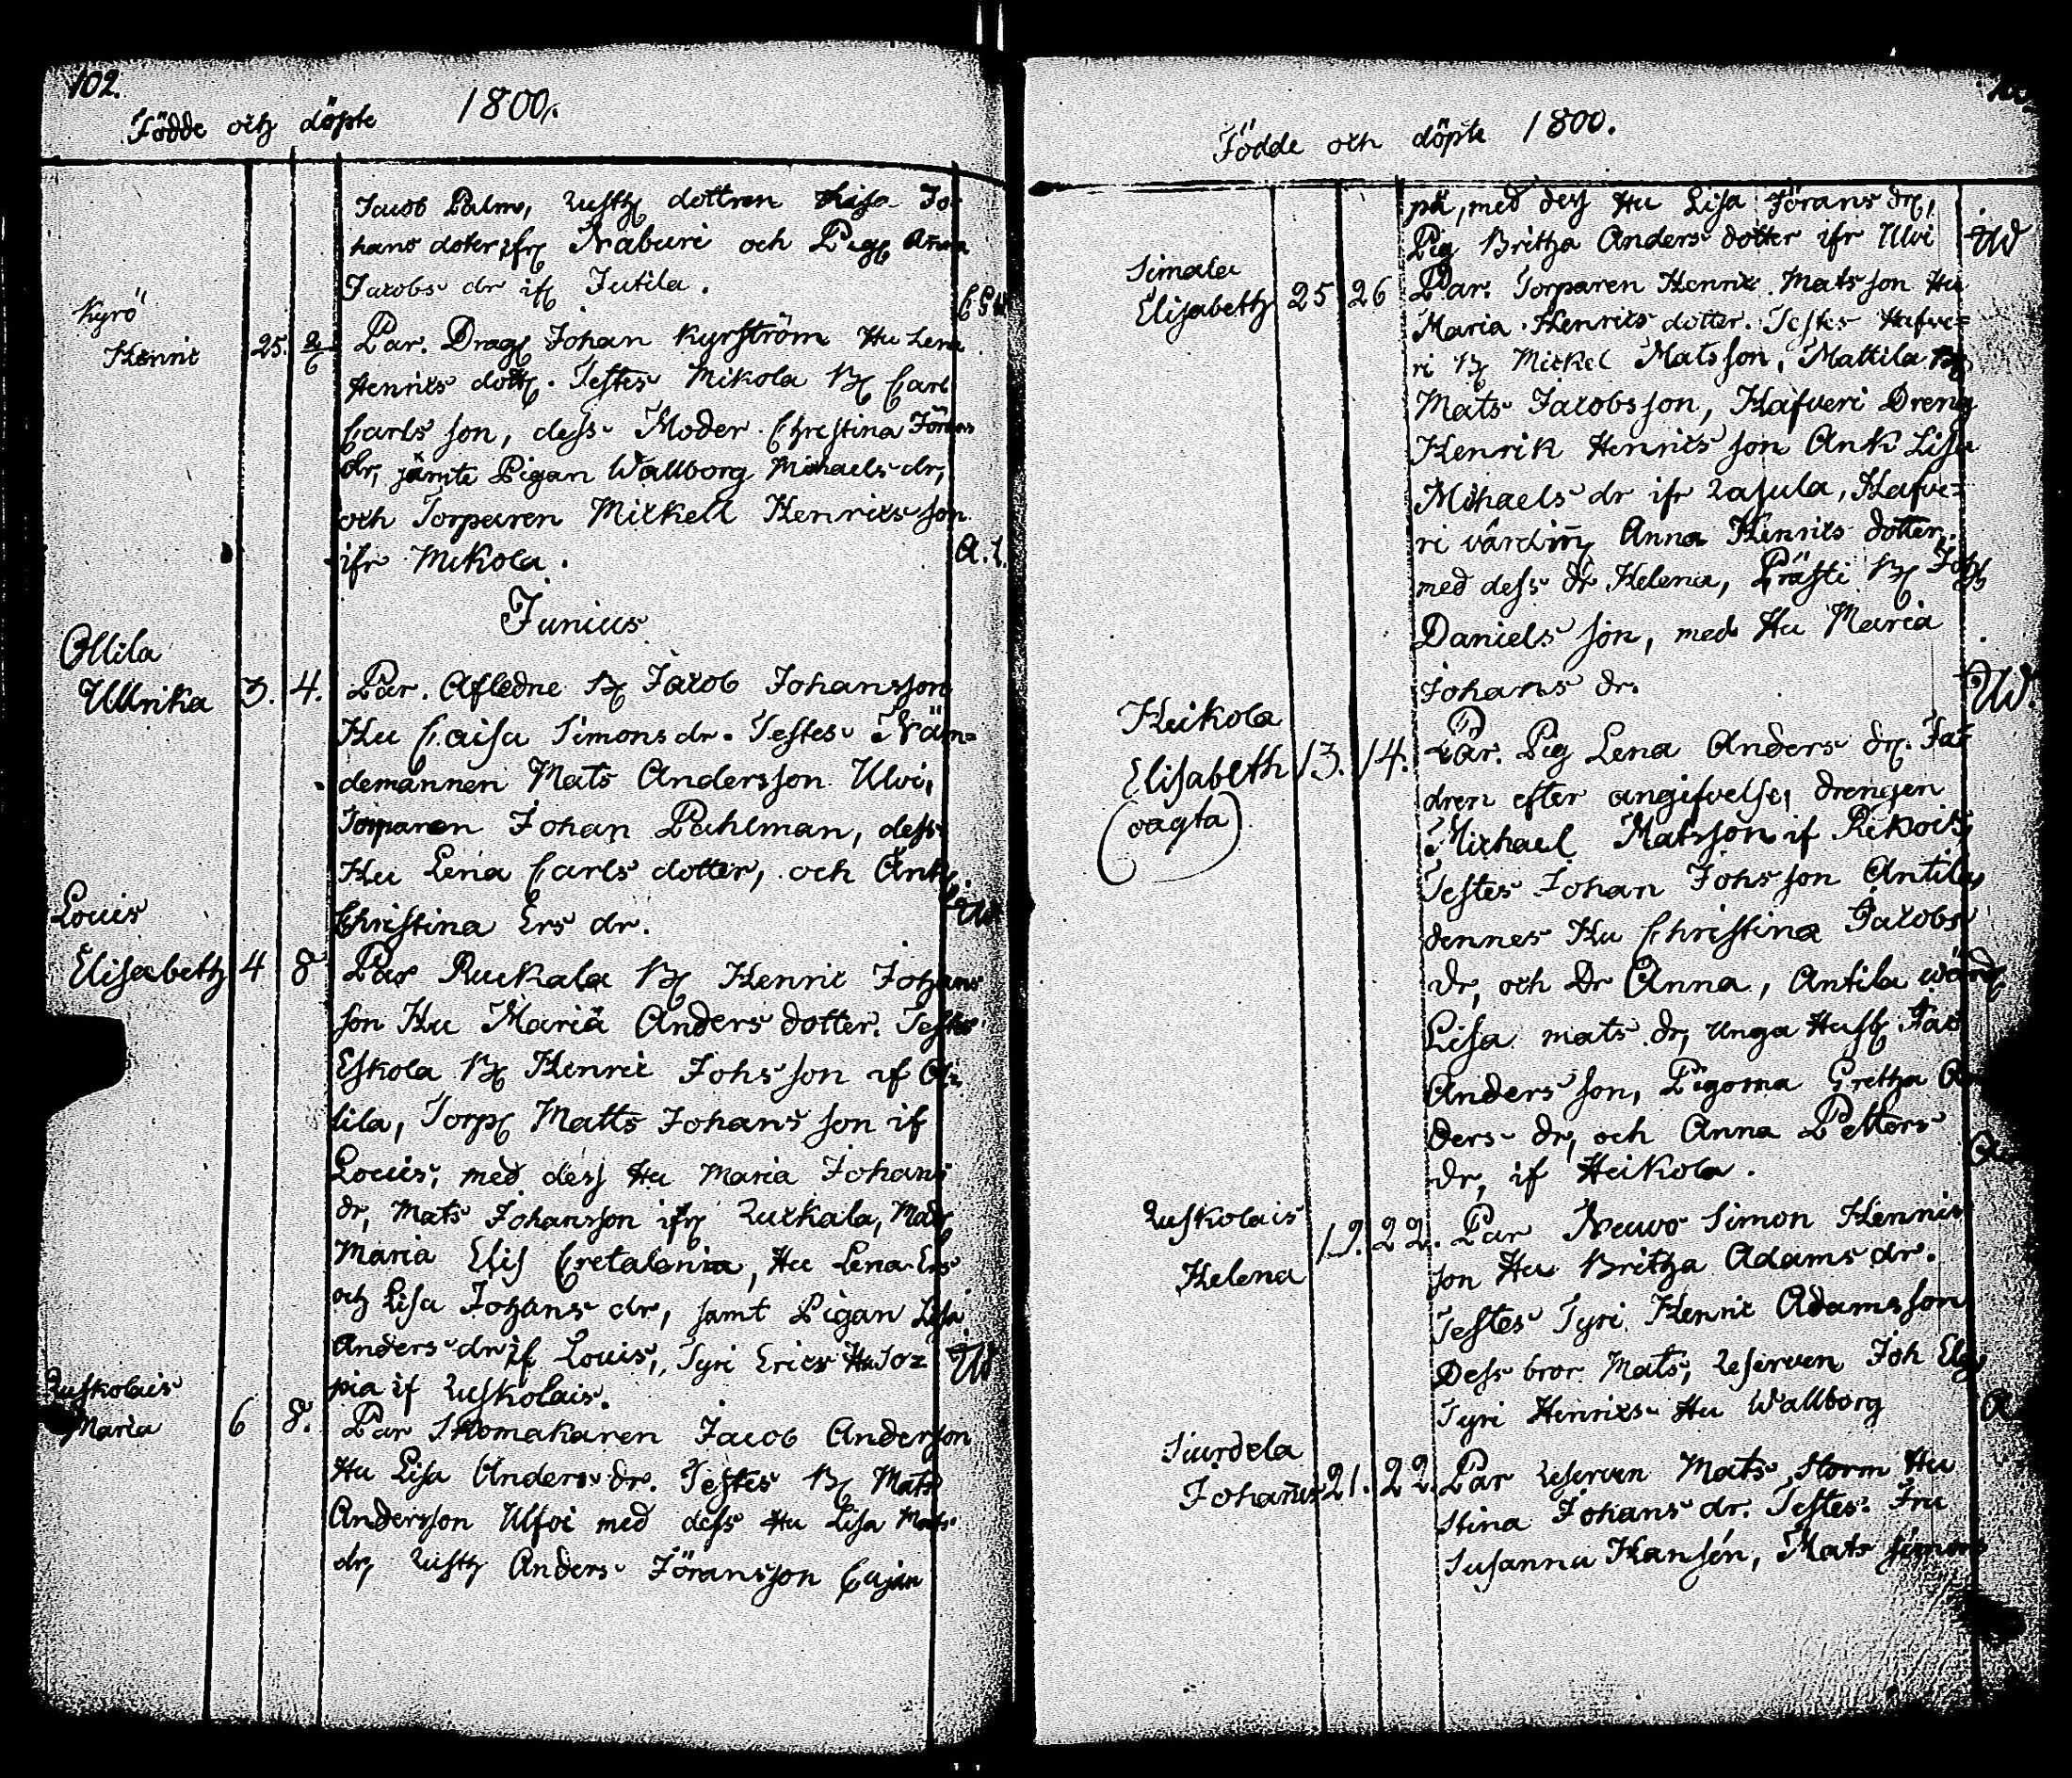 102.
Födde och döpte 1800.
Jacob Palm, Rusth dottren Lisa Jo-
hans doter ifr Naburi och Pig Anna
Jacobs dr if Jutila.
Kyrö
Henric 25. 2/6 Par. Drag Johan Kyrström Hu Lena
Henrics dott. Testes Mikola B Carl
Carls son, dess Moder Christina Jörans
dr, jämte Pigan Wallborg Michaels dr,
och Torparen Mickell Henrics son
ifr Mikola. A.L.
Junius
Ollila
Ullrika 3. 4. Par. Afledne B Jacob Johansson
Hu Caisa Simons dr. Testes Näm=
demannen Mats Andersson Ulvi,
Torparen Johan Pahlman, dess
Hu Lena Carls dotter, och Ank.
Christina Ers dr.
Louis
Elisabeth 4 8 Par Ruckala B Henric Johans
son Hu Maria Anders dotter. Testes
Eskola B Henric Johs son if Ol-
lila, Torp Matts Johans son if
Louis, med dess Hu Maria Johans
dr, Mats Johansson ifr Ruckala, Mad
Maria Elis Cretalenia, Hu Lena Ers
och Lisa Johans dr, samt Pigan Lisa
Anders dr if Louis, Tyri Erics Hu
pia if Ruskolais.
Ruskolais
Maria 6 8. Par Skomakaren Jacob Andersson
Hu Lisa Anders dr. Testes B Mats
Andersson Ulfvi med dess Hu Lisa Mats
dr, Rusth Anders Jöransson Cajan
Födde och döpte 1800.
pä, med dess Hu Lisa Jörans dr,
Pig Britha Anders dotter ifr Ulvi
Simala
Elisabeth 25 26 Par. Torparen Henric Matsson Hu
Maria Henrics dotter. Testes Hafve=
ri B Mickel Matsson, Mattila B
Mats Jacobsson, Hafveri Dreng
Henrik Henrics son Ank Lisa
Michaels dr ifr Rasula, Hafve=
ri värdin Anna Henrics dotter,
med dess dr Helena, Prästi B Johs
Daniels son, med Hu Maria
Johans dr.
Heikola
Elisabeth 13. 14. Par. Pig Lena Anders dr. Fa-
(oagta)
dren efter angifvelse, drengen
Michael Matsson if Rekois,
Testes Johan Johs son Antila,
dennes Hu Christina Jacobs
dr, och Dr Anna, Antila wärd
Lisa mats dr, Unga Husb Jac
Anders son, Pigorna Gretha An
ders dr, och Anna Petters
dr, if Heikola.
Ruskolais
Helena 19. 22. Par Neuvo Simon Henrics
son Hu Britha Adams dr.
Testes Tyri Henric Adamsson
Dess bror Mats, Reserven Joh Elg,
Tyri Henrics Hu Wallborg
Siurdela
Johannes 21. 22. Par Reserven Mats Storm Hu
Stina Johans dr. Testes Fru
Susanna Hansén, Mats Simons